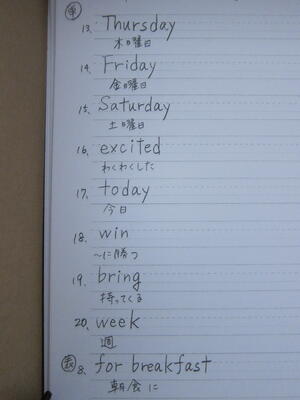 単
13. Thursday
木曜日
14. Friday
金曜日
15. Saturday
土曜日
16. excited
わくわくした
17. today
今日
18. win
〜に勝つ
19. bring
持ってくる
20. week
週
表 8. for breakfast
朝食に